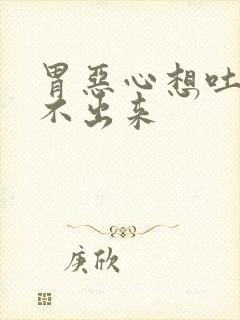 胃恶心想吐
不出来
庚欣